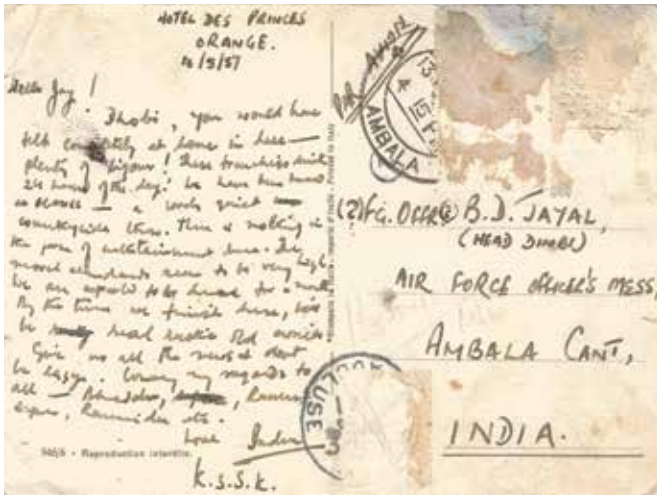 HOTEL DES PRINCES
ORANGE.
Hello Jay!
Dhobi, you would have
felt completely at home in here —
plenty of liquor! These Frenchies drink
24 hours of the day! We have been here
in — a lovely quiet
countryside town. There is nothing in
the form of entertainment here. The
moral standards seem to be very high.
We are expected to be here for a month
By the time we finish here, we'll
be real exotic old
Give us all the news & don't
be lazy. Convey my regards to
all —
etc.
Love Inder
K.S.S.K.
565/6 - Reproduction interdite.
Par Avion
AMBALA
(2) FG. OFFR B.D. JAYAL,
(HEAD DHOBI)
AIR FORCE OFFICER'S MESS,
AMBALA CANT,
INDIA.